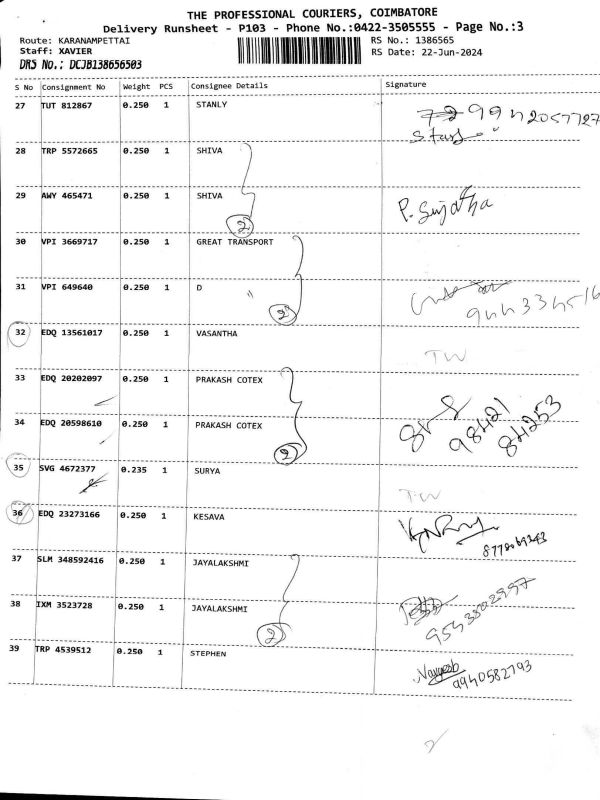 THE PROFESSIONAL COURIERS, COIMBATORE
Delivery Runsheet - P103 - Phone No.:0422-3505555 - Page No.:3
Route: KARANAMPETTAI
RS No.: 1386565
Staff: XAVIER
RS Date: 22-Jun-2024
DRS No.: DCJB138656503
S No Consignment No Weight PCS Consignee Details Signature
27 TUT 812867 0.250 1 STANLY
28 TRP 5572665 0.250 1 SHIVA
29 AWY 465471 0.250 1 SHIVA P. Sujatha
2
30 VPI 3669717 0.250 1 GREAT TRANSPORT
31 VPI 649640 0.250 1 D "
2
32 EDQ 13561017 0.250 1 VASANTHA TW
33 EDQ 20202097 0.250 1 PRAKASH COTEX
34 EDQ 20598610 0.250 1 PRAKASH COTEX 98421
84253
2
35 SVG 4672377 0.235 1 SURYA TW
36 EDQ 23273166 0.250 1 KESAVA
37 SLM 348592416 0.250 1 JAYALAKSHMI
38 IXM 3523728 0.250 1 JAYALAKSHMI
2
39 TRP 4539512 0.250 1 STEPHEN
9940582793